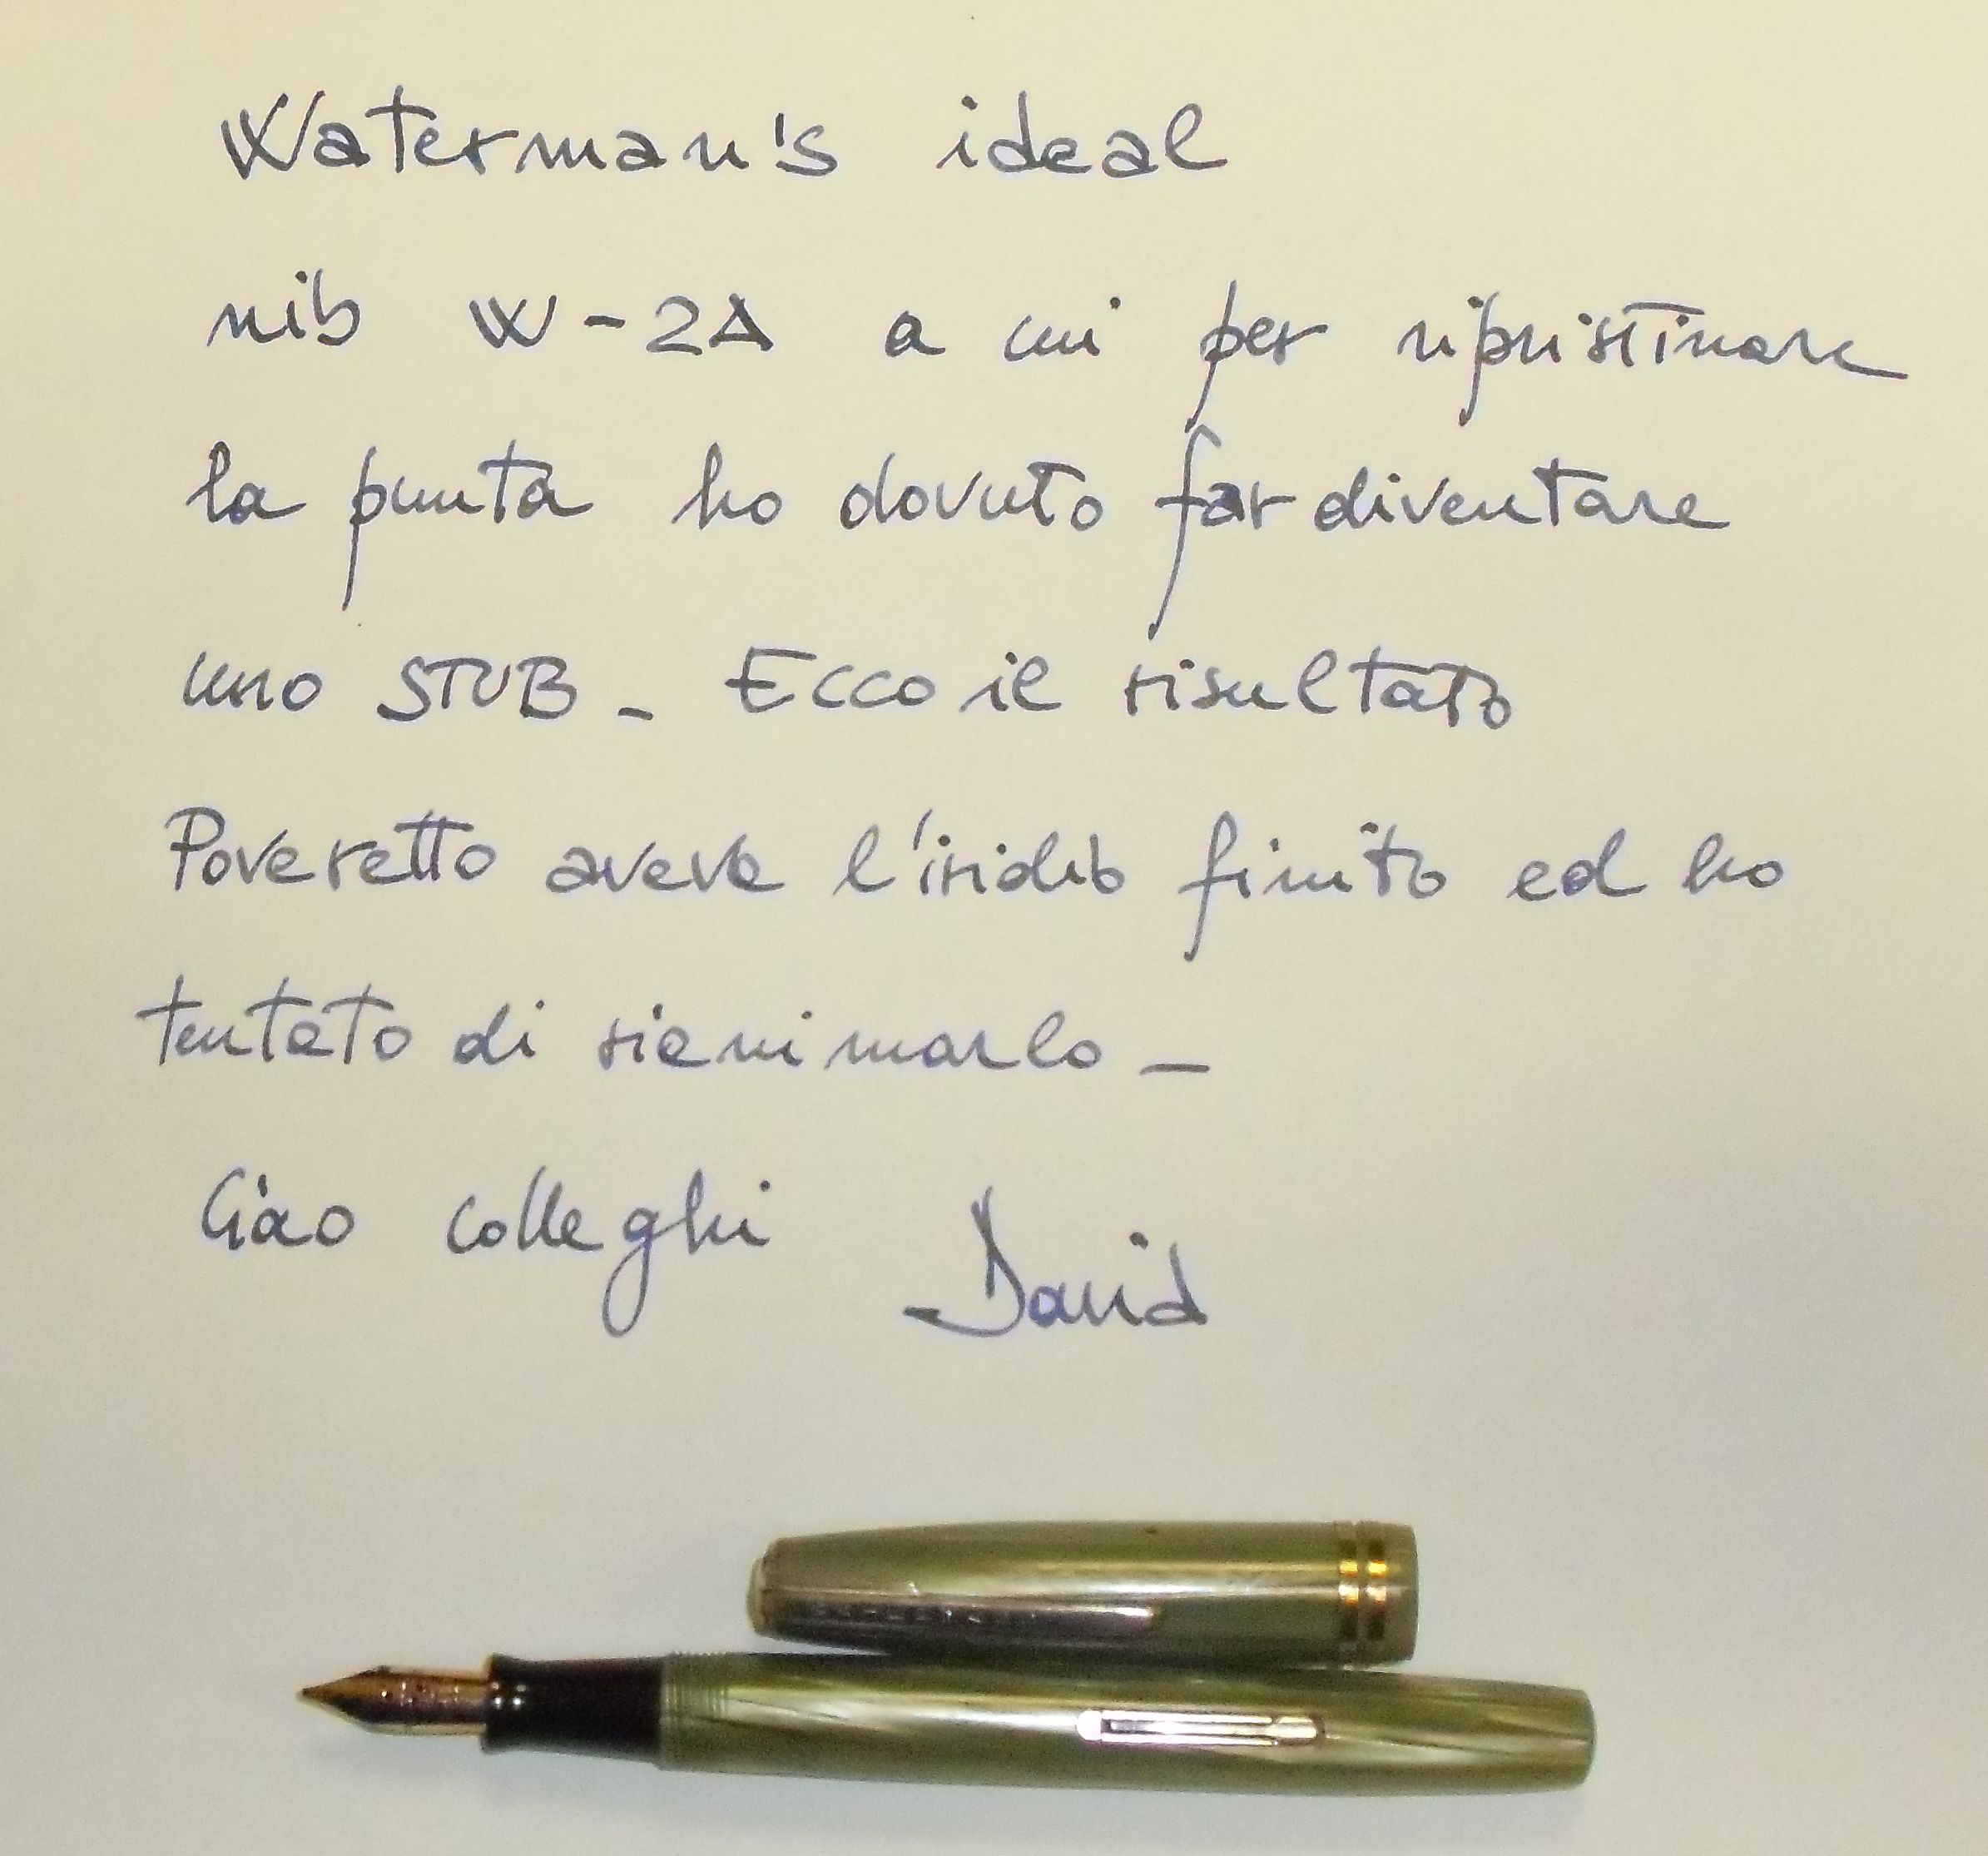 Waterman's ideal
nib W-2A a cui per ripristinare
la punta ho dovuto far diventare
uno STUB_ Ecco il risultato
Poveretto aveva l'iridio finito ed ho
tentato di rianimarlo _
Ciao colleghi David